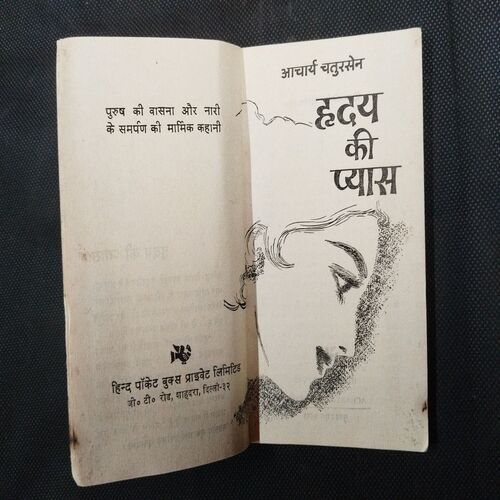 पुरुष की वासना और नारी
के समर्पण की मार्मिक कहानी
हिन्द पॉकेट बुक्स प्राइवेट लिमिटेड
जी० टी० रोड, शाहदरा, दिल्ली-३२
आचार्य चतुरसेन
हृदय
की
प्यास